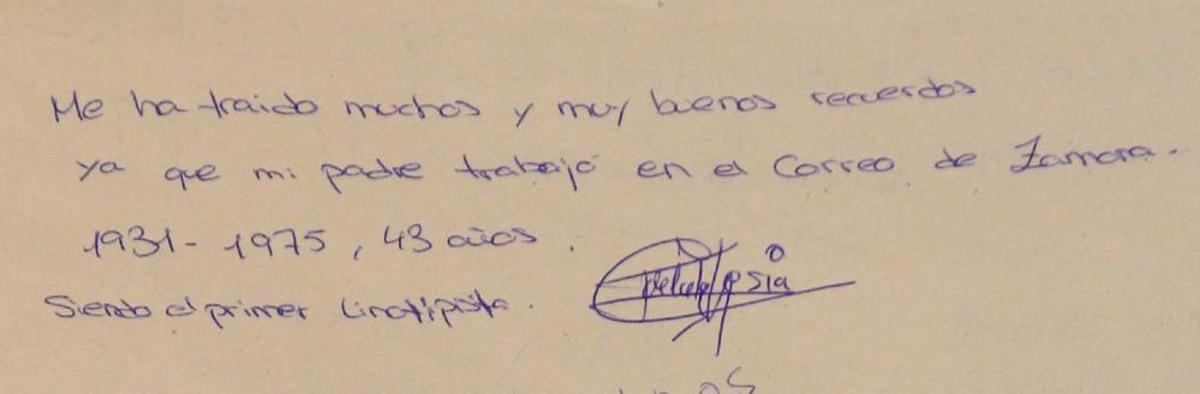 Me ha traido muchos y muy buenos recuerdos
ya que mi padre trabajó en el Correo de Zamora.
1931-1975, 43 años.
Siendo el primer Linotipista.